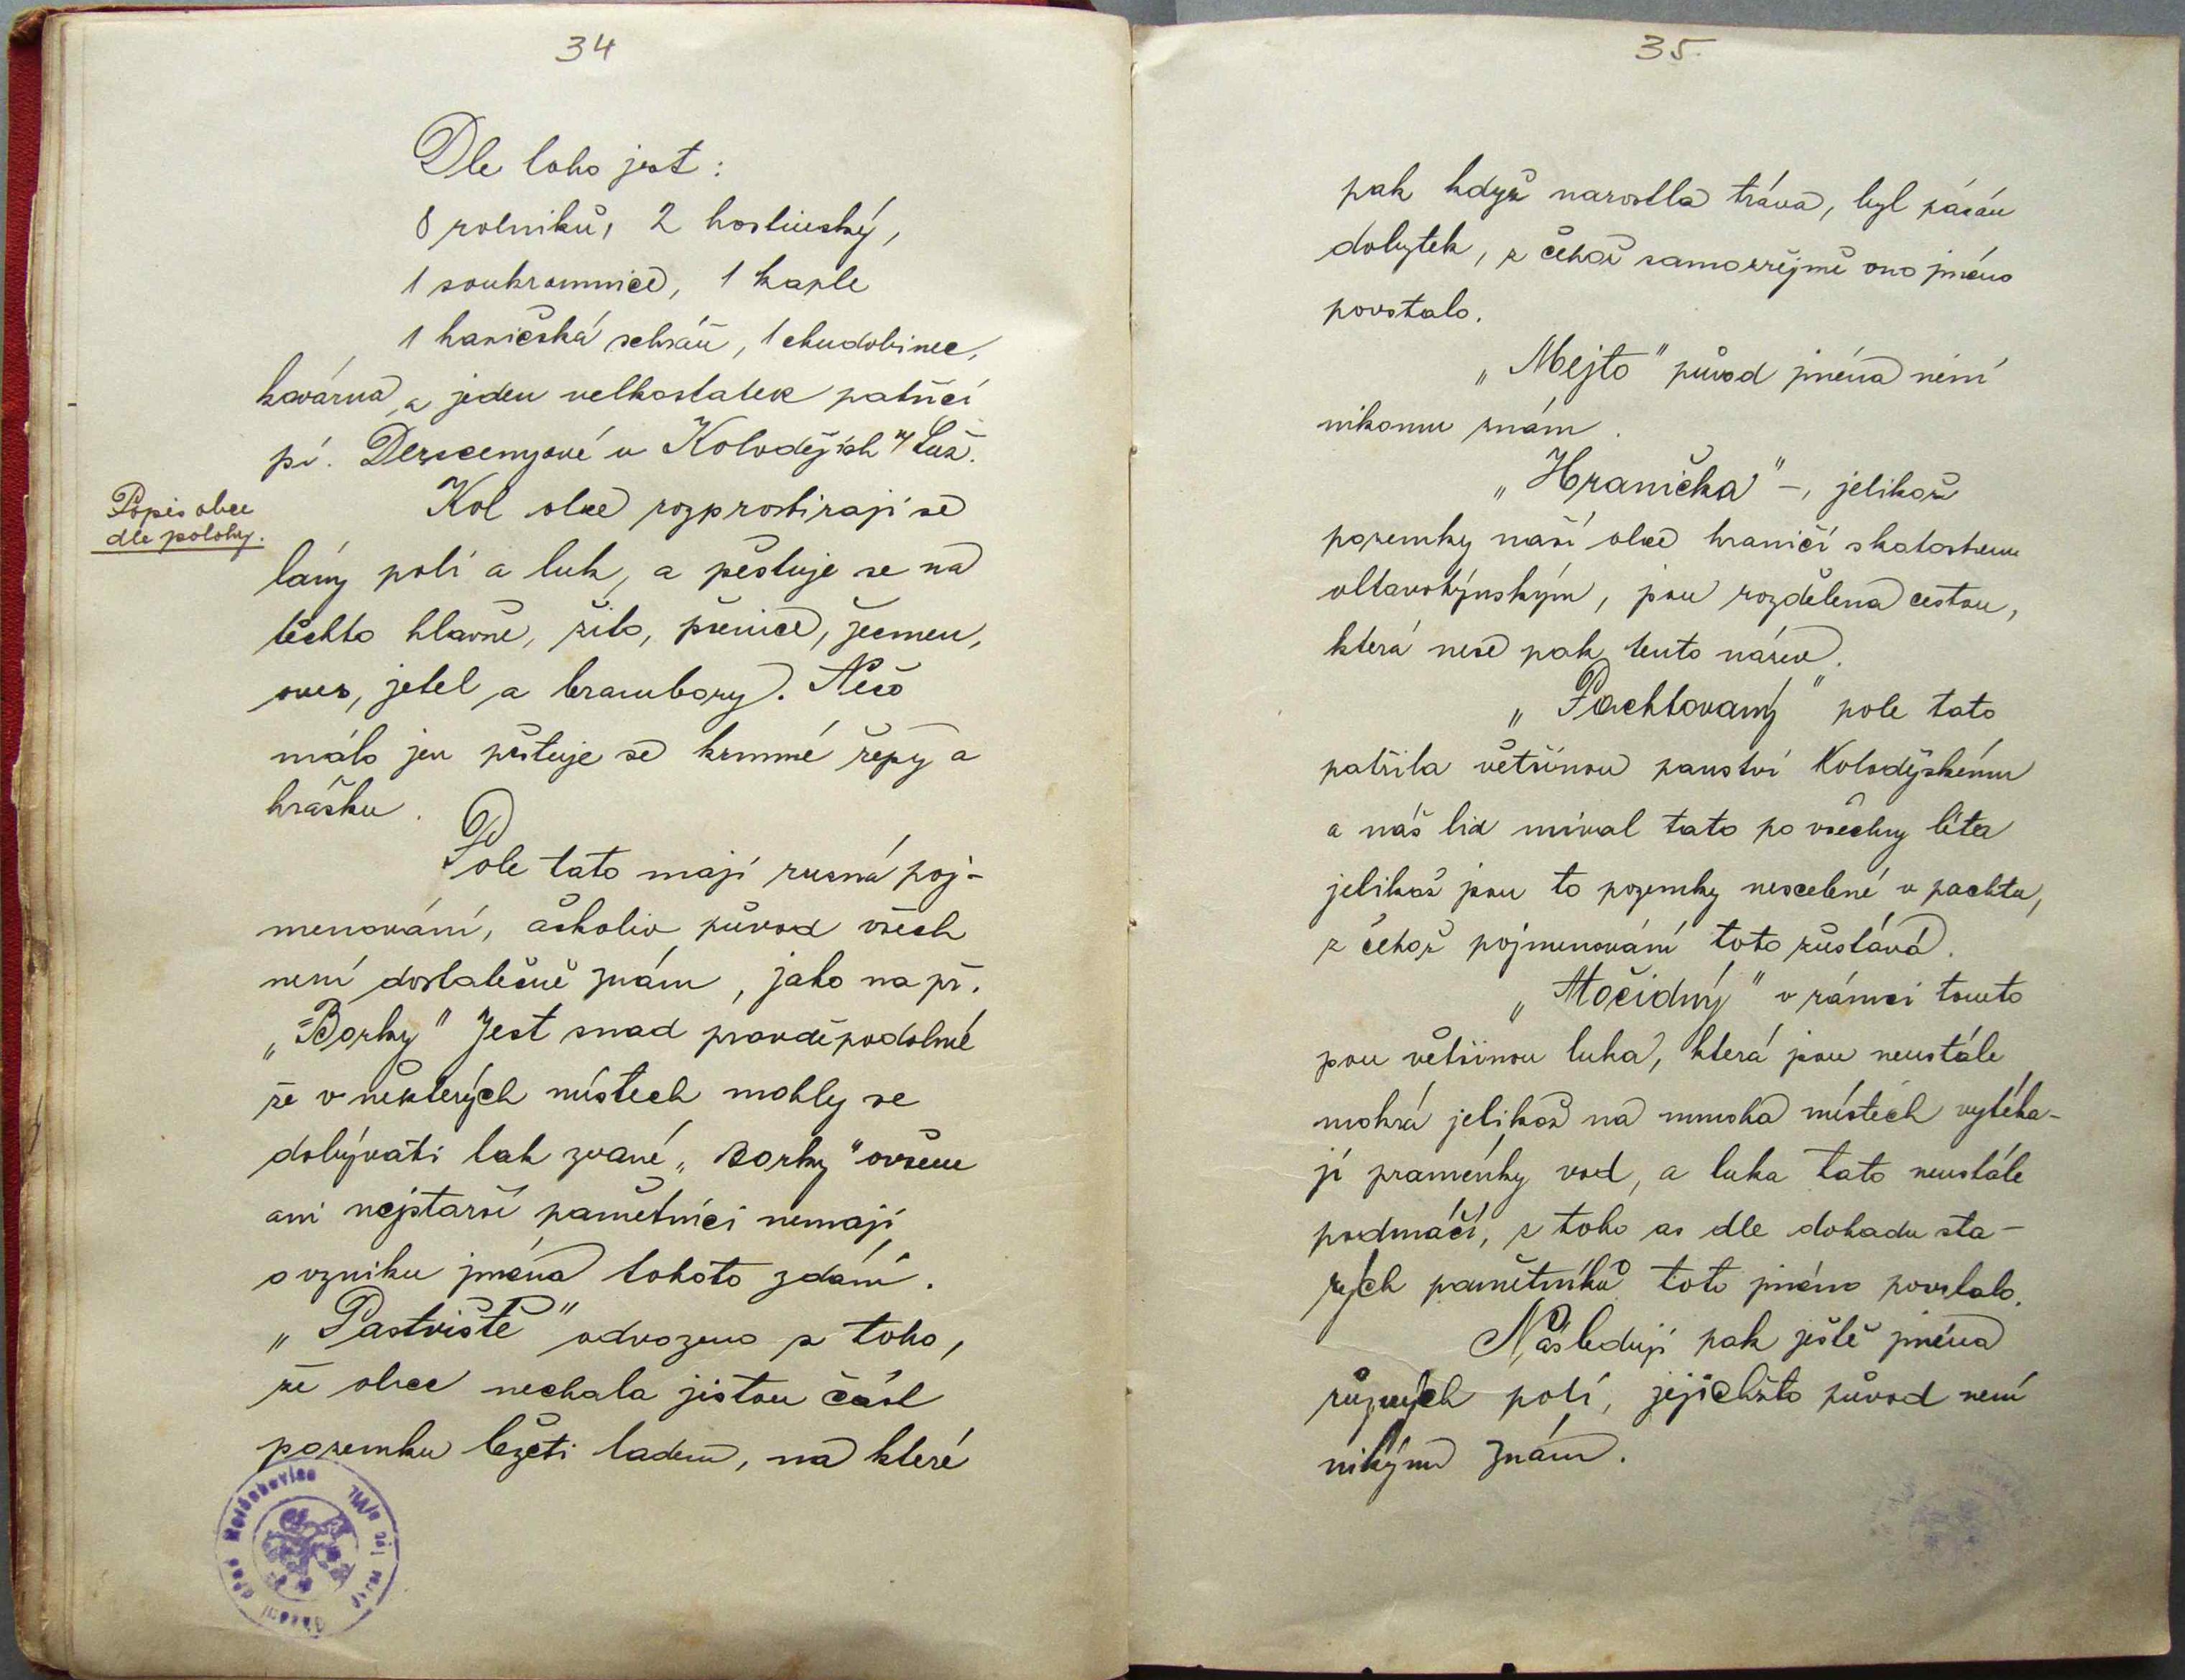 34
Dle toho jest:
8 rolníků, 2 hostinský,
1 soukromnice, 1 kaple
1 hasičská schráň, 1 chudobinec,
kovárna, a jeden velkostatek patřící
pí. Dersceny­ové v Kolodějích n/Luž.
Popis obce
dle polohy.
Kol obce rozprostirají se
lány polí a luk, a pěstuje se na
těchto hlavně, žito, pšenice, ječmen,
oves, jetel a brambory. Něco
málo jen pěstuje se krmné řepy a
hrášku.
Pole tato mají různá poj-
menování, ačkoliv původ všech
není dostatečně znám, jako na př.
„Borky" Jest snad pravděpodobné
že v některých místech mohly se
dobývati tak zvané „Borky" ovšem
ani nejstarší pamětníci nemají
o vzniku jména tohoto zdání.
„Pastviště" odvozeno z toho,
že obec nechala jistou část
pozemku ležeti ladem, na které
35
pak když narostla tráva, byl pásán
dobytek, z čehož samozřejmě ono jméno
povstalo.
„Mejto" původ jména není
nikomu znám.
„Hranička" -, jelikož
pozemky naší obce hraničí s katastrem
vltavotýnským, jsou rozdělena cestou,
která nese pak tento název.
„Pachtovaný" pole tato
patřila většinou panství Kolodějskému
a náš lid míval tato po všechny léta
jelikož jsou to pozemky nescelené v pachtu,
z čehož pojmenování toto zůstává.
„Močidný" v rámci tomto
jsou většinou luka, která jsou neustále
mokrá jelikož na mnoha místech vytéka-
jí praménky vod, a luka tato neustále
podmáčí, z toho as dle dohadu sta-
rých pamětníků toto jméno povstalo.
Následují pak ještě jména
různých polí, jejichžto původ není
nikým znám.